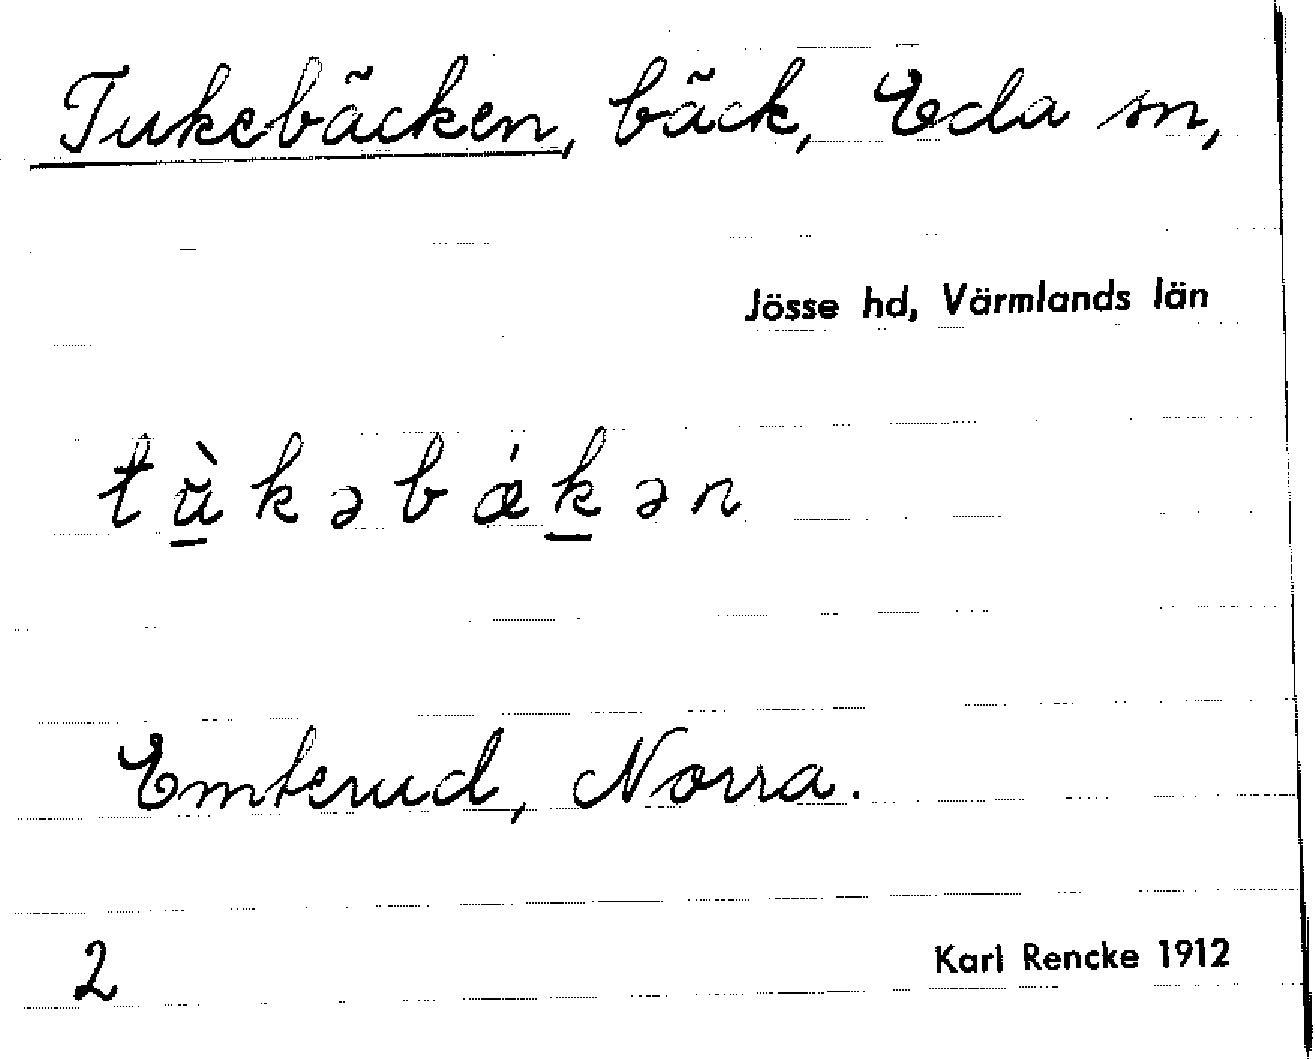 Tukebäcken, bäck, Eda sn,
Jösse hd, Värmlands län
tù̲kəbǽk̲ən
Emterud, Norra.
2
Karl Rencke 1912